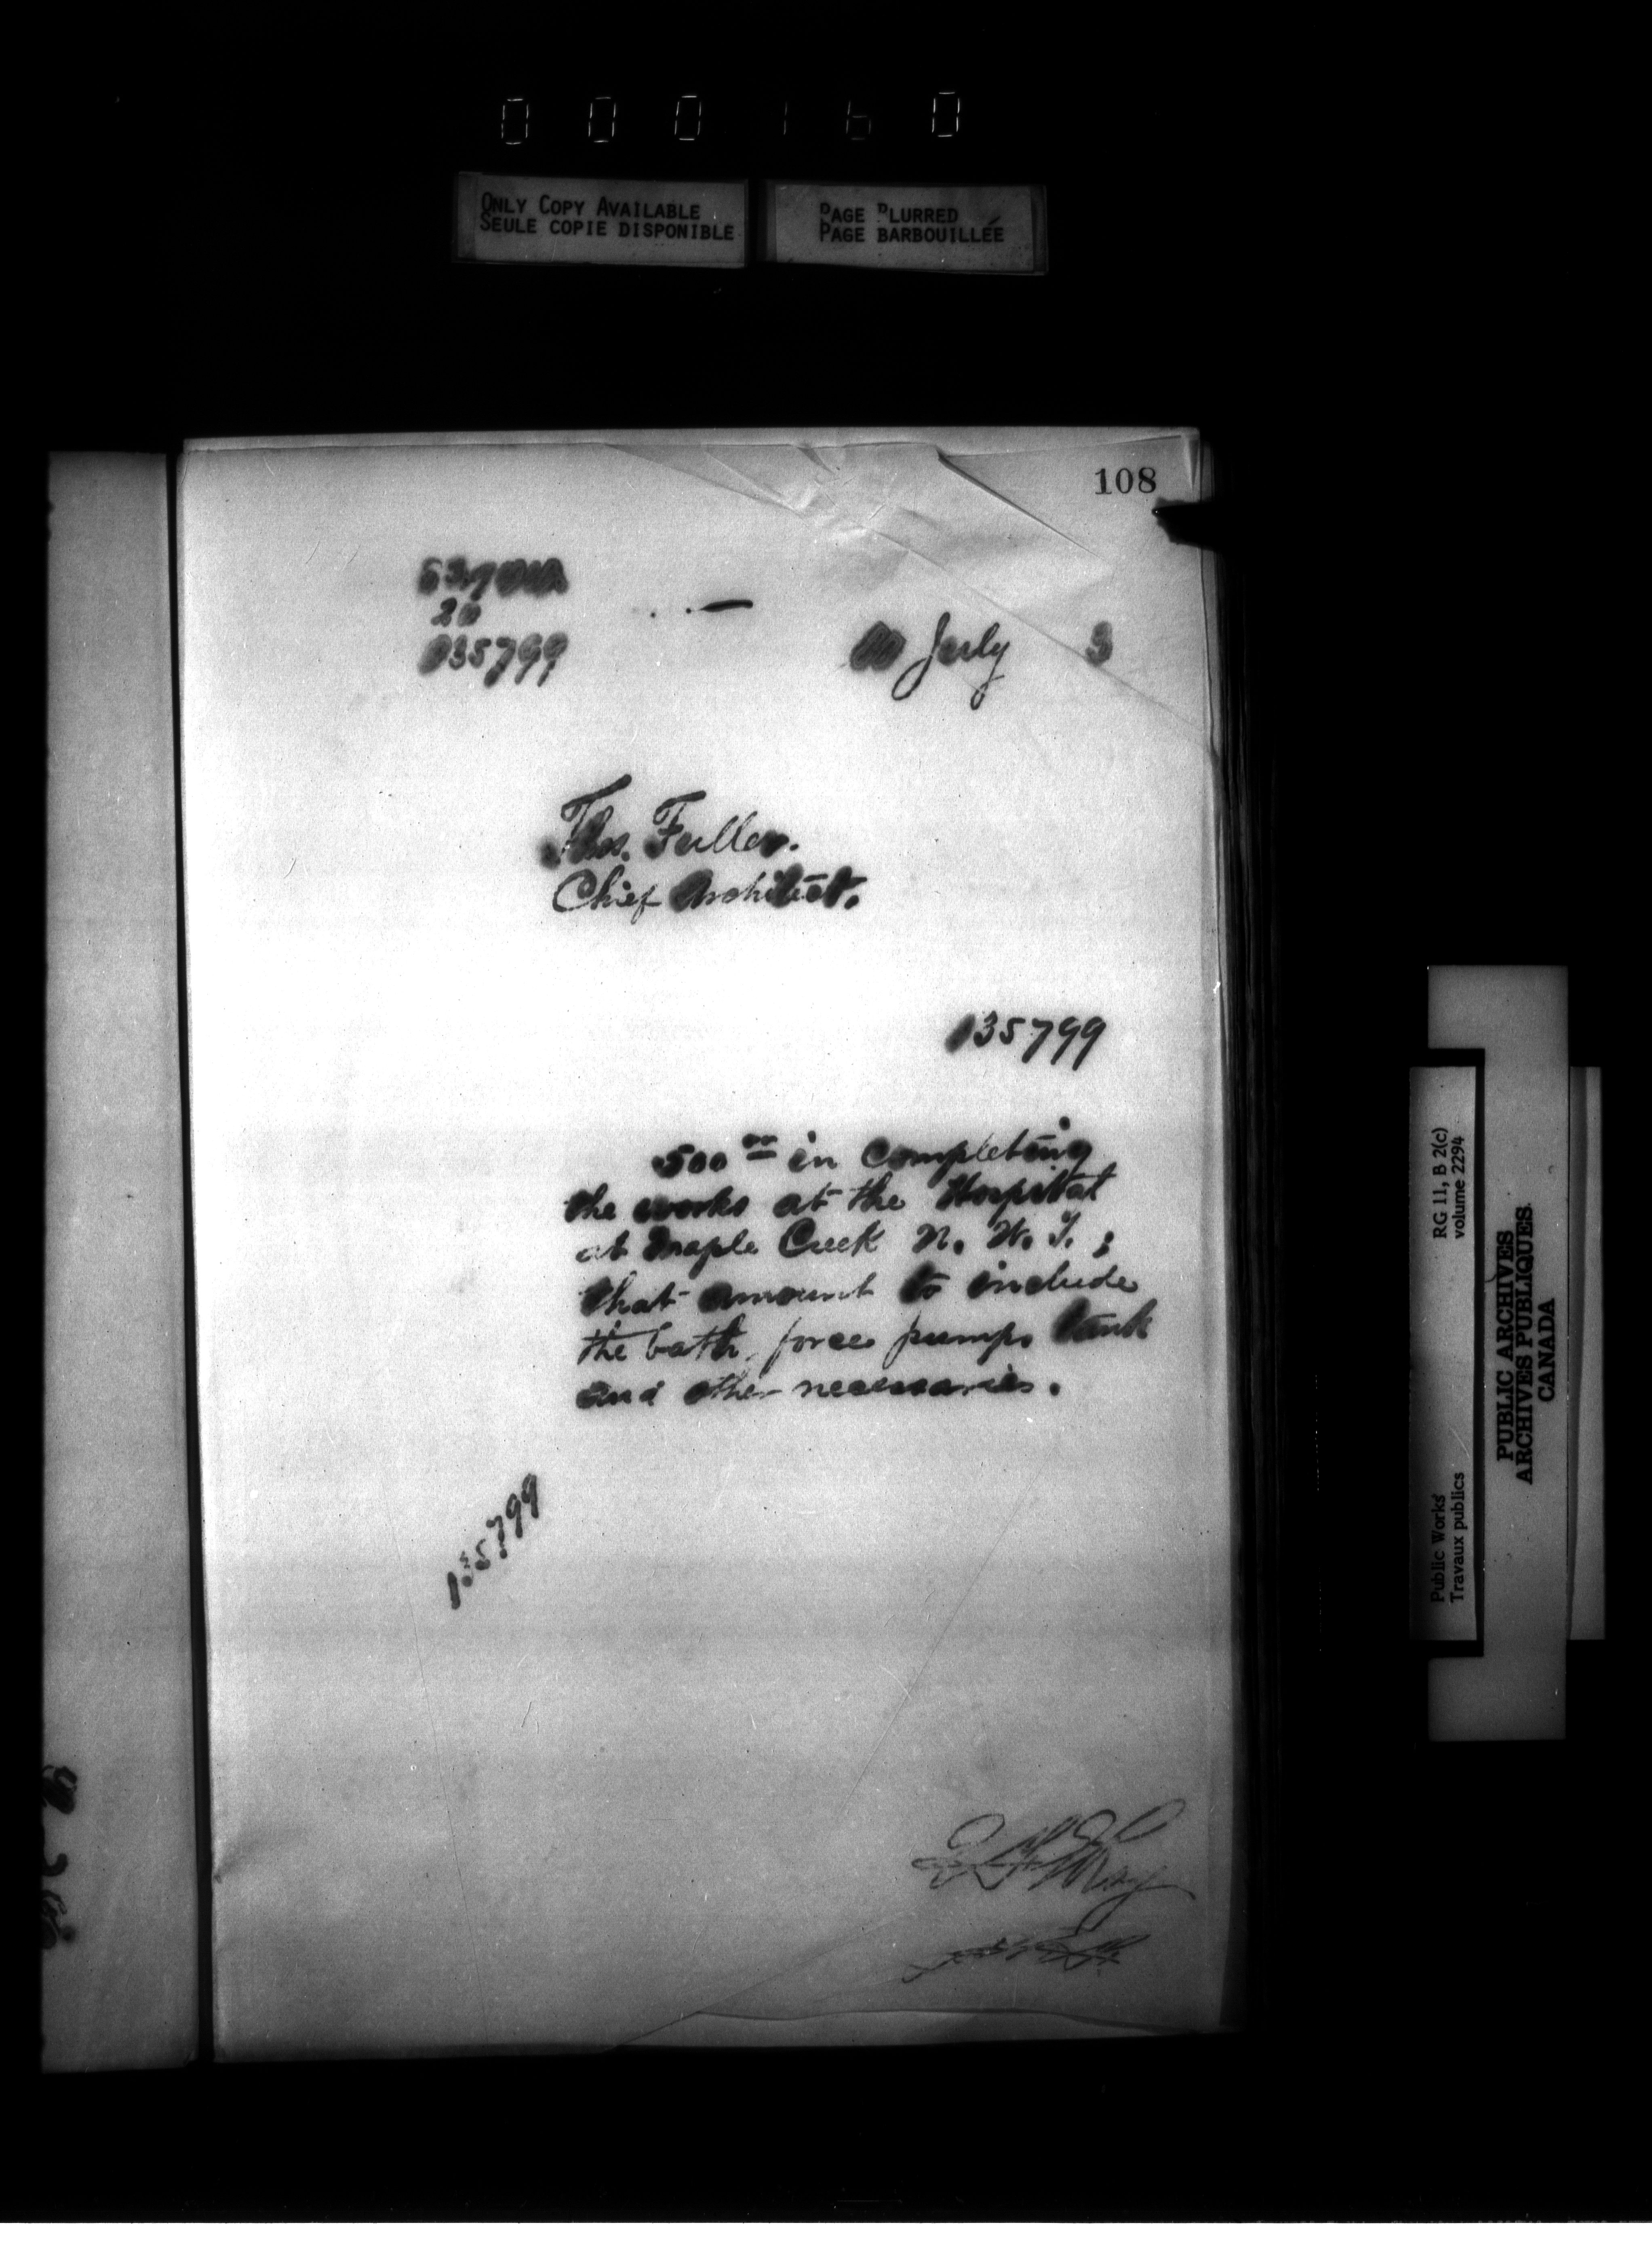 000160
ONLY COPY AVAILABLE
SEULE COPIE DISPONIBLE
PAGE BLURRED
PAGE BARBOUILLÉE
108
20
135799
July 3
Thos. Fuller.
Chief Architect.
135799
500 00 in completing
the works at the Hospital
at Maple Creek N. W. T. ;
that amount to include
the bath, force pumps tank
and other necessaries.
135799
Public Works
Travaux publics
RG 11, B 2(c)
volume 2294
PUBLIC ARCHIVES
ARCHIVES PUBLIQUES
CANADA